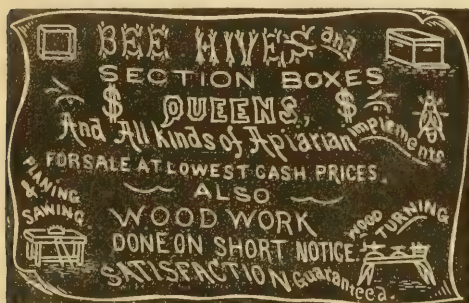 BEE HIVES and
SECTION BOXES
$ QUEENS, $
And All Kinds of Apiarian implements
FOR SALE AT LOWEST CASH PRICES.
ALSO
PLANING & SAWING
WOOD WORK
WOOD TURNING
DONE ON SHORT NOTICE.
SATISFACTION Guaranteed.